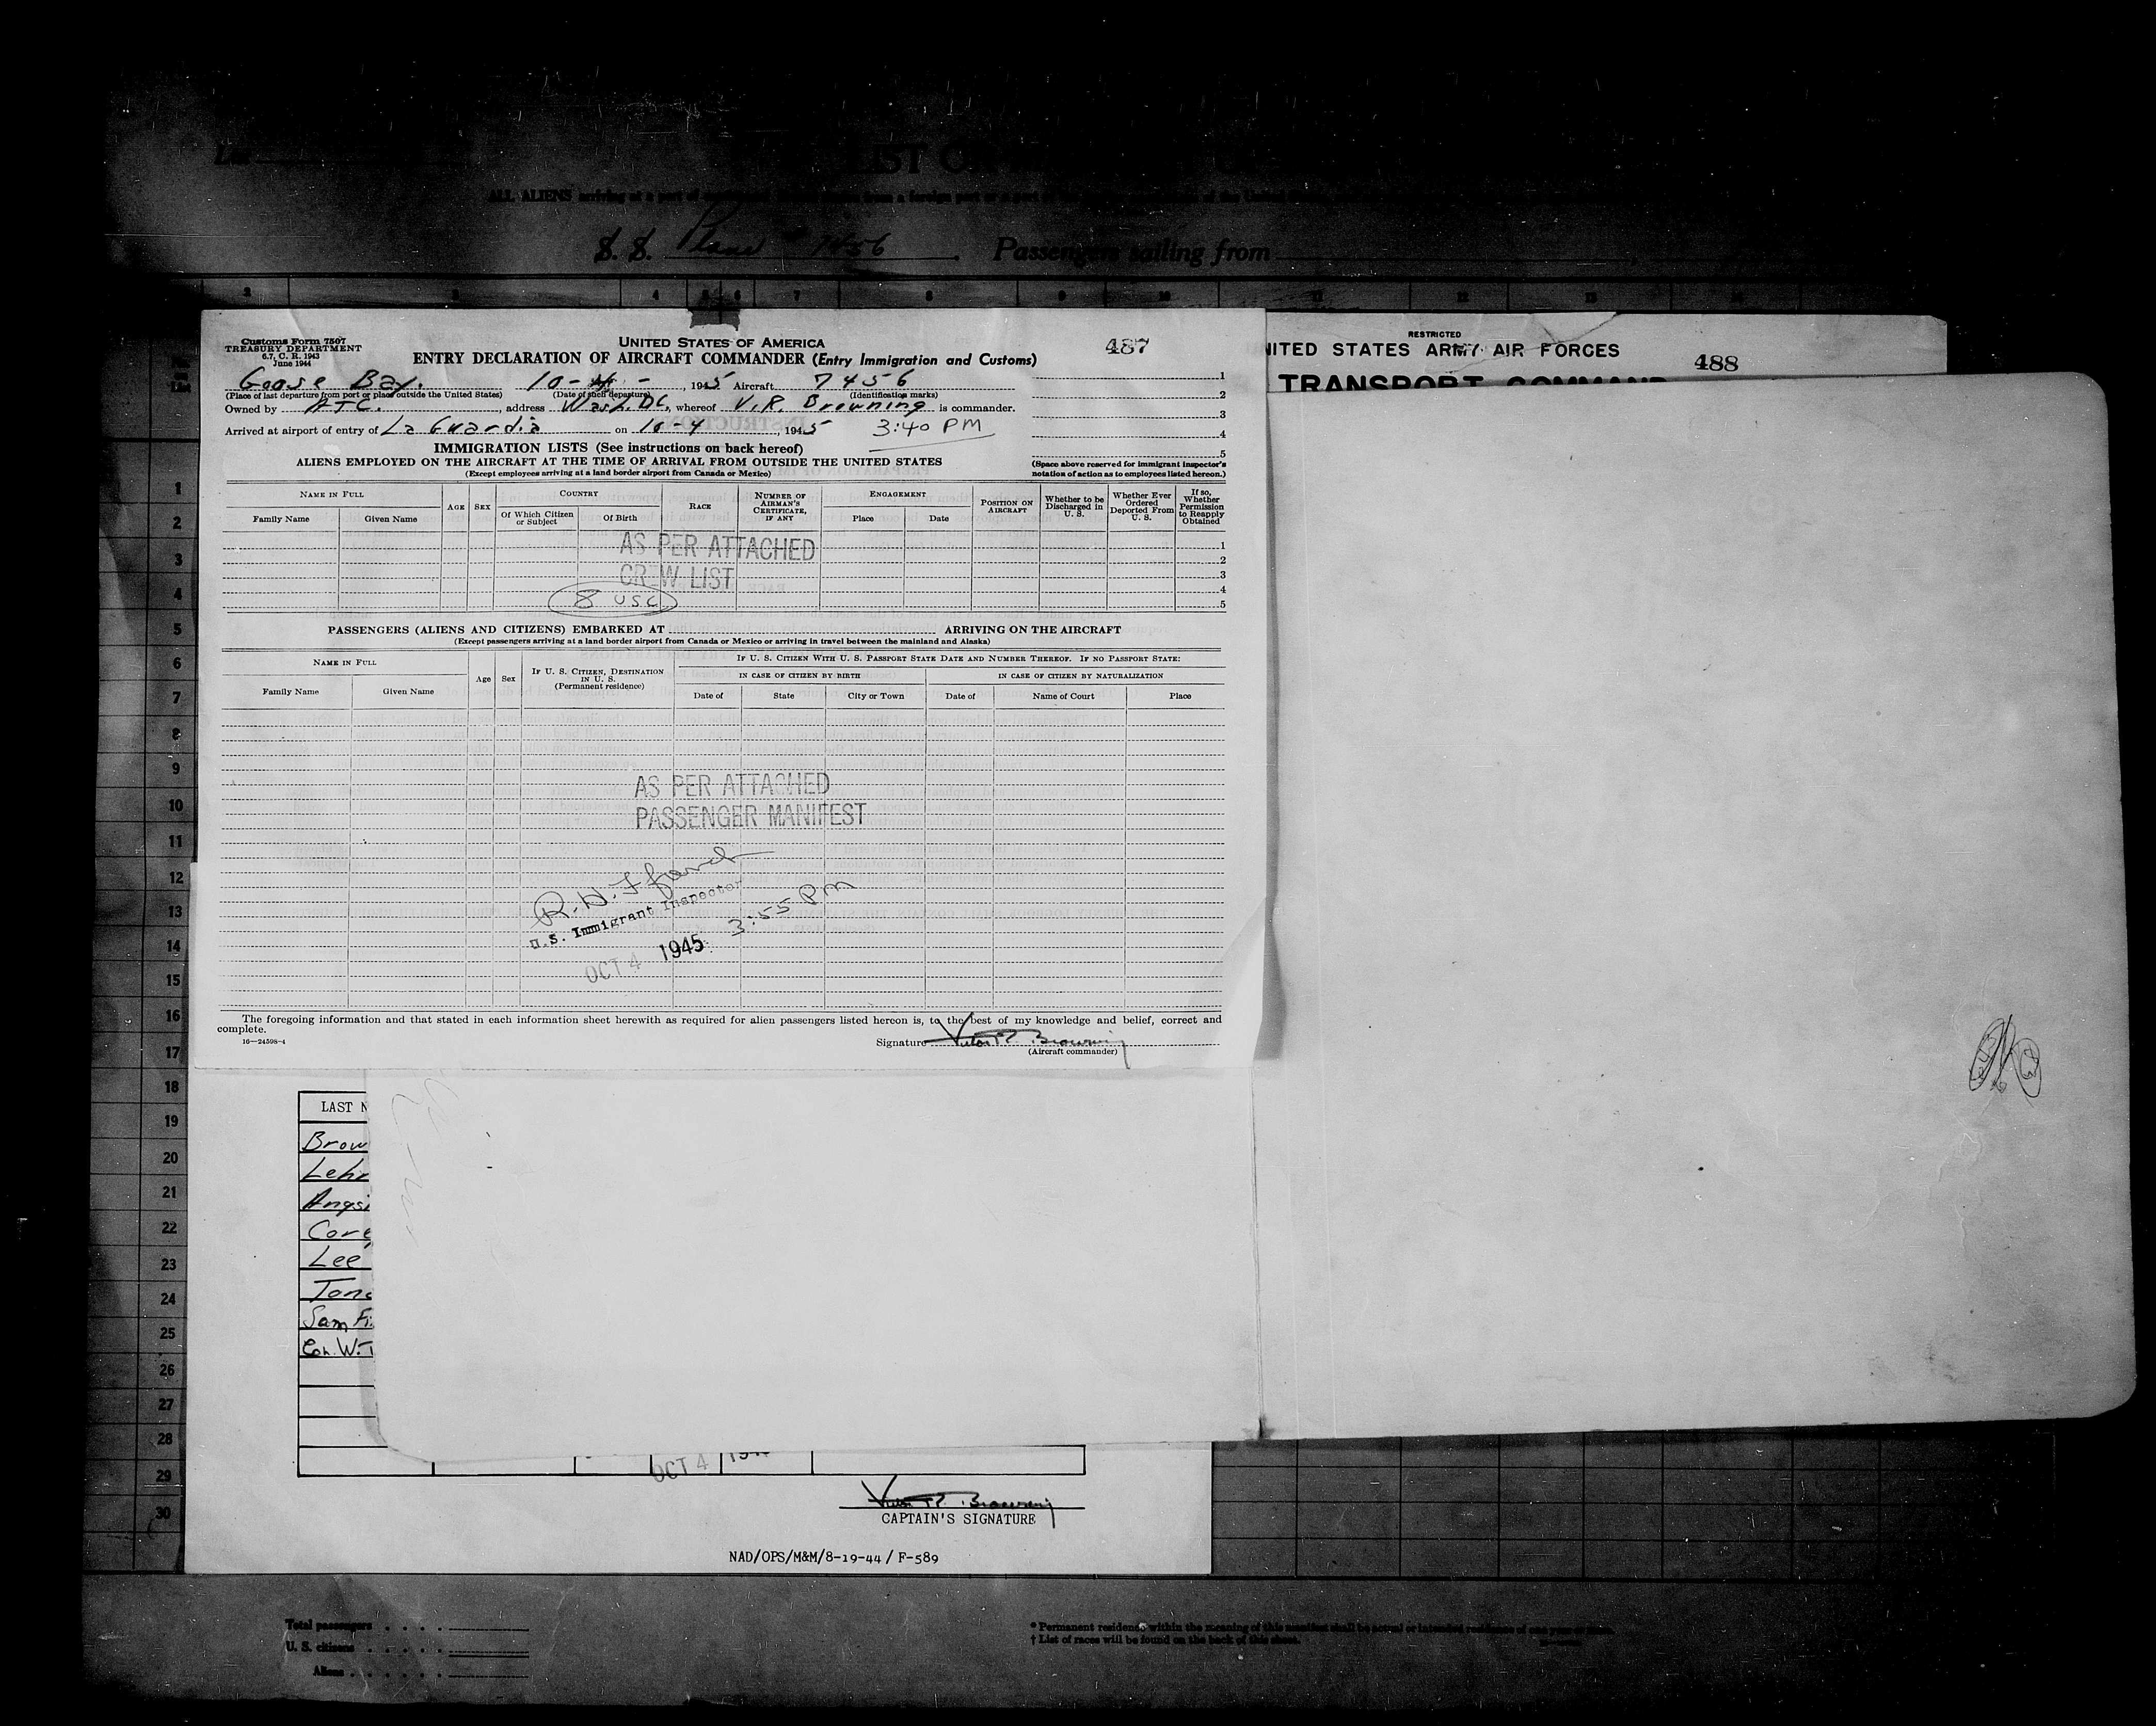 LIST OR
ALL ALIENS arriving at a port of from a foreign port or a port of of the United
S. S. Plane 7456 Passengers sailing from
2 3 4 5 6 7 8 9 10 11 12 13 14
Customs Form 7507
TREASURY DEPARTMENT
6.7, C. R. 1943
June 1944
UNITED STATES OF AMERICA
487
ENTRY DECLARATION OF AIRCRAFT COMMANDER (Entry Immigration and Customs)
Goose Bay. 10-4-, 1945 Aircraft 7456
(Place of last departure from port or place outside the United States) (Date of such departure) (Identification marks)
Owned by ATC., address Wash. DC, whereof V.R. Browning is commander.
Arrived at airport of entry of La Guardia on 10-4, 1945 3:40 PM
1
2
3
4
5
(Space above reserved for immigrant inspector's
notation of action as to employees listed hereon.)
IMMIGRATION LISTS (See instructions on back hereof)
ALIENS EMPLOYED ON THE AIRCRAFT AT THE TIME OF ARRIVAL FROM OUTSIDE THE UNITED STATES
(Except employees arriving at a land border airport from Canada or Mexico)
NAME IN FULL
Family Name Given Name
AGE SEX
COUNTRY
Of Which Citizen or Subject Of Birth
RACE
NUMBER OF AIRMAN'S CERTIFICATE, IF ANY
ENGAGEMENT
Place Date
POSITION ON AIRCRAFT
Whether to be Discharged in U. S.
Whether Ever Ordered Deported From U. S.
If so, Whether Permission to Reapply Obtained
AS PER ATTACHED
CREW LIST
8 USC
1
2
3
4
5
PASSENGERS (ALIENS AND CITIZENS) EMBARKED AT ARRIVING ON THE AIRCRAFT
(Except passengers arriving at a land border airport from Canada or Mexico or arriving in travel between the mainland and Alaska)
NAME IN FULL
Family Name Given Name
Age Sex
IF U. S. CITIZEN, DESTINATION IN U. S.
(Permanent residence)
IF U. S. CITIZEN WITH U. S. PASSPORT STATE DATE AND NUMBER THEREOF. IF NO PASSPORT STATE:
IN CASE OF CITIZEN BY BIRTH IN CASE OF CITIZEN BY NATURALIZATION
Date of State City or Town Date of Name of Court Place
AS PER ATTACHED
PASSENGER MANIFEST
U.S. Immigrant Inspector
3:55 PM
OCT 4 1945
The foregoing information and that stated in each information sheet herewith as required for alien passengers listed hereon is, to the best of my knowledge and belief, correct and
complete.
16—24598-4
Signature Victor R. Browning
(Aircraft commander)
RESTRICTED
NITED STATES ARMY AIR FORCES
488
TRANSPORT COMMAND
1
2
3
4
5
6
7
8
9
10
11
12
13
14
15
16
17
18
19
20
21
22
23
24
25
26
27
28
29
30
LAST N
Brow
Leh
Angs
Core
Lee
Tone
Sam Fi
Con. W.T
OCT 4 194
Victor R. Browning
CAPTAIN'S SIGNATURE
NAD/OPS/M&M/8-19-44 / F-589
Total passengers
U. S. citizens
Aliens
* Permanent residence within the meaning of this manifest shall be actual or intended residence of one year or more.
† List of races will be found on the back of this sheet.